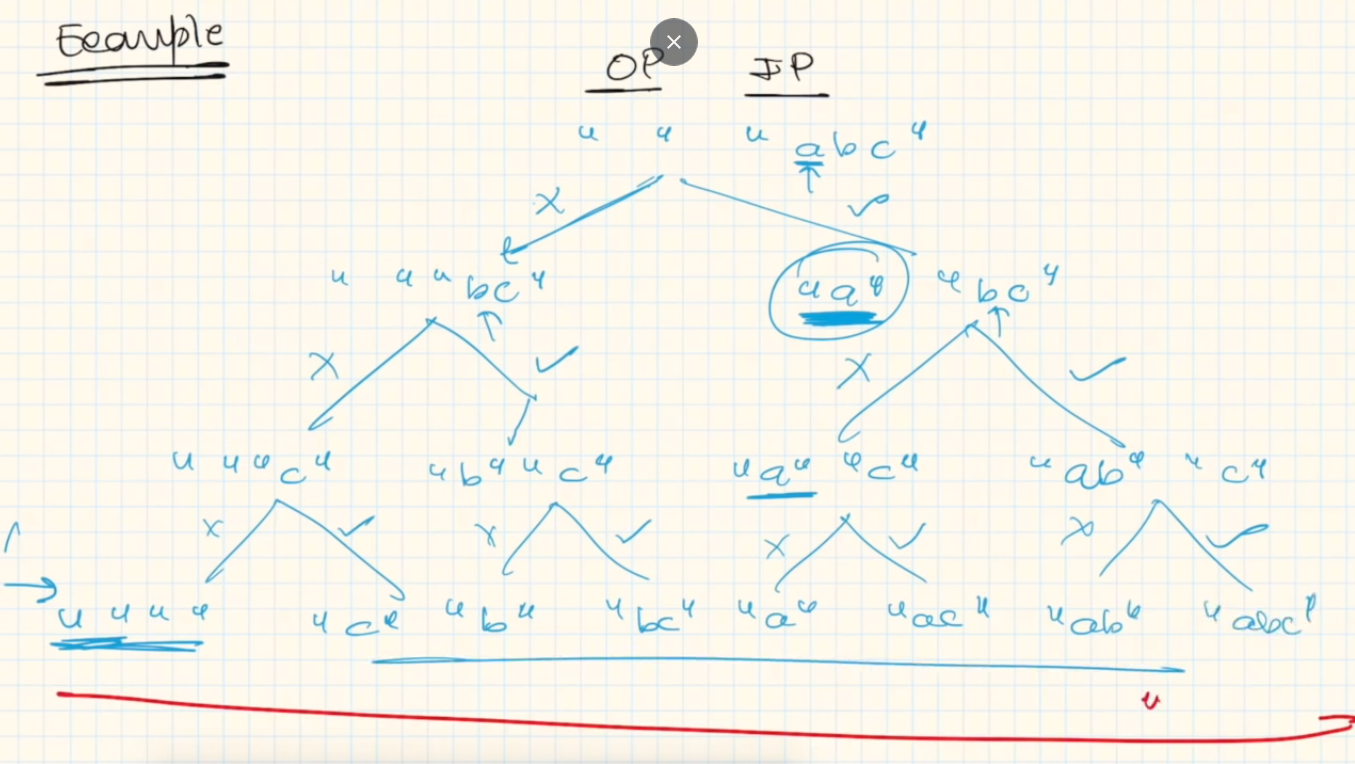 Example
OP IP
" " "abc"
X ✓
" " "bc" "a" "bc"
X ✓ X ✓
" " "c" "b" "c" "a" "c" "ab" "c"
X ✓ X ✓ X ✓ X ✓
" " " " "c" "b" "bc" "a" "ac" "ab" "abc"